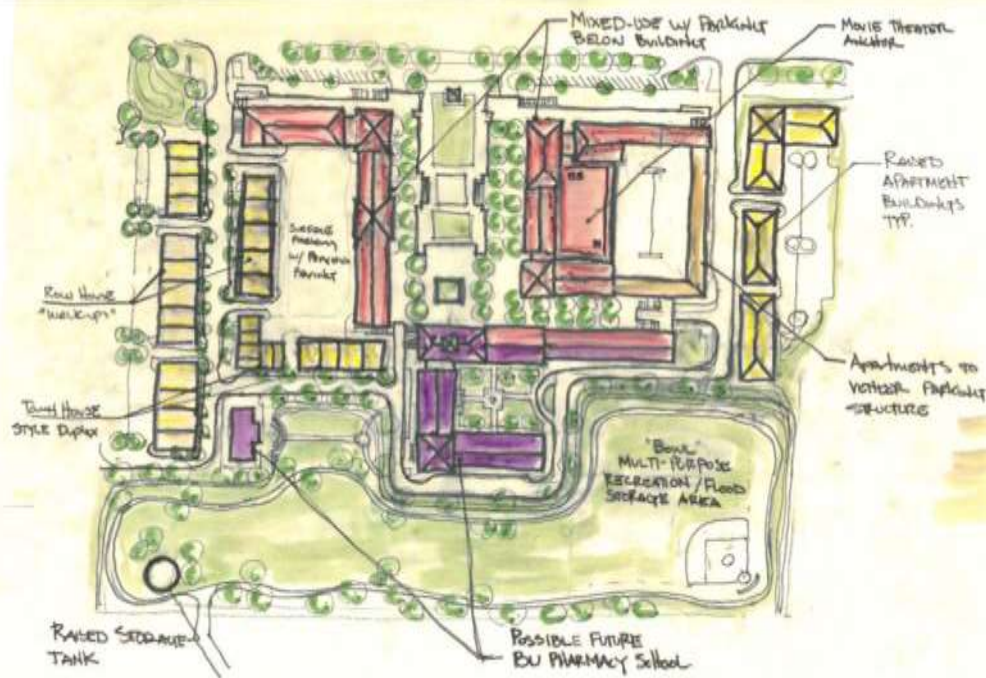 MIXED-USE W/ PARKING
BELOW BUILDING
MOVIE THEATER
ANCHOR
RAISED
APARTMENT
BUILDINGS
TYP.
SURFACE
PARKING
W/
ROW HOUSE
"WALK-UPS"
TOWN HOUSE
STYLE DUPLEX
APARTMENTS TO
PARKING
STRUCTURE
"BOWL"
MULTI-PURPOSE
RECREATION/FLOOD
STORAGE AREA
RAISED STORAGE
TANK
POSSIBLE FUTURE
BU PHARMACY SCHOOL